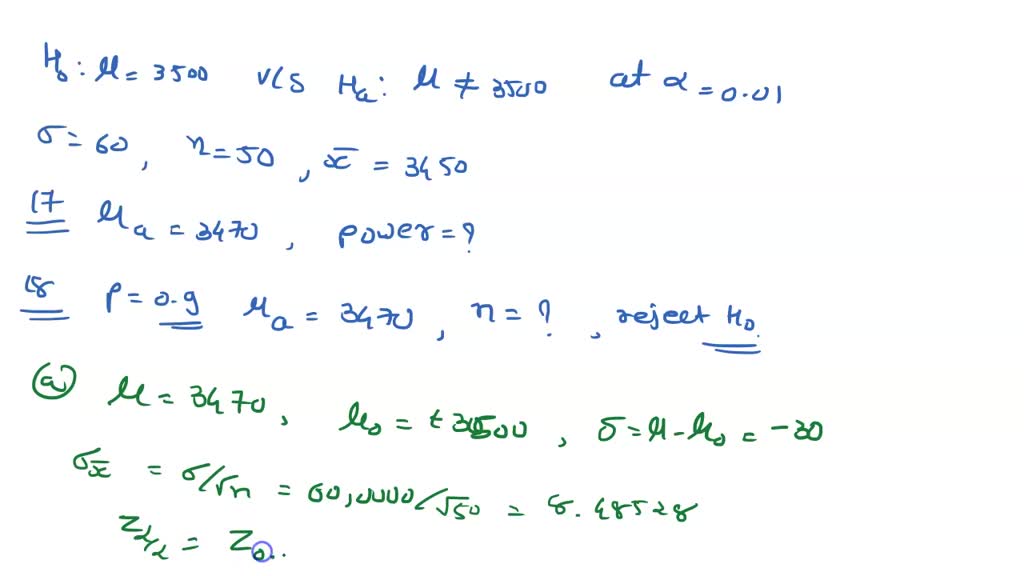 H₀ : μ = 3500 v/s Hₐ : μ ≠ 3500 at α = 0.01
σ = 60 , n = 50 , x̄ = 3450
17 μₐ = 3470 , power = ?
18 P = 0.9 μₐ = 3470 , n = ? , reject H₀.
(a) μ = 3470 , μ₀ = 3500 , δ = μ - μ₀ = -30
σx̄ = σ/√n = 60,0000/√50 = 8.48528
Z α/2 = Z 0..